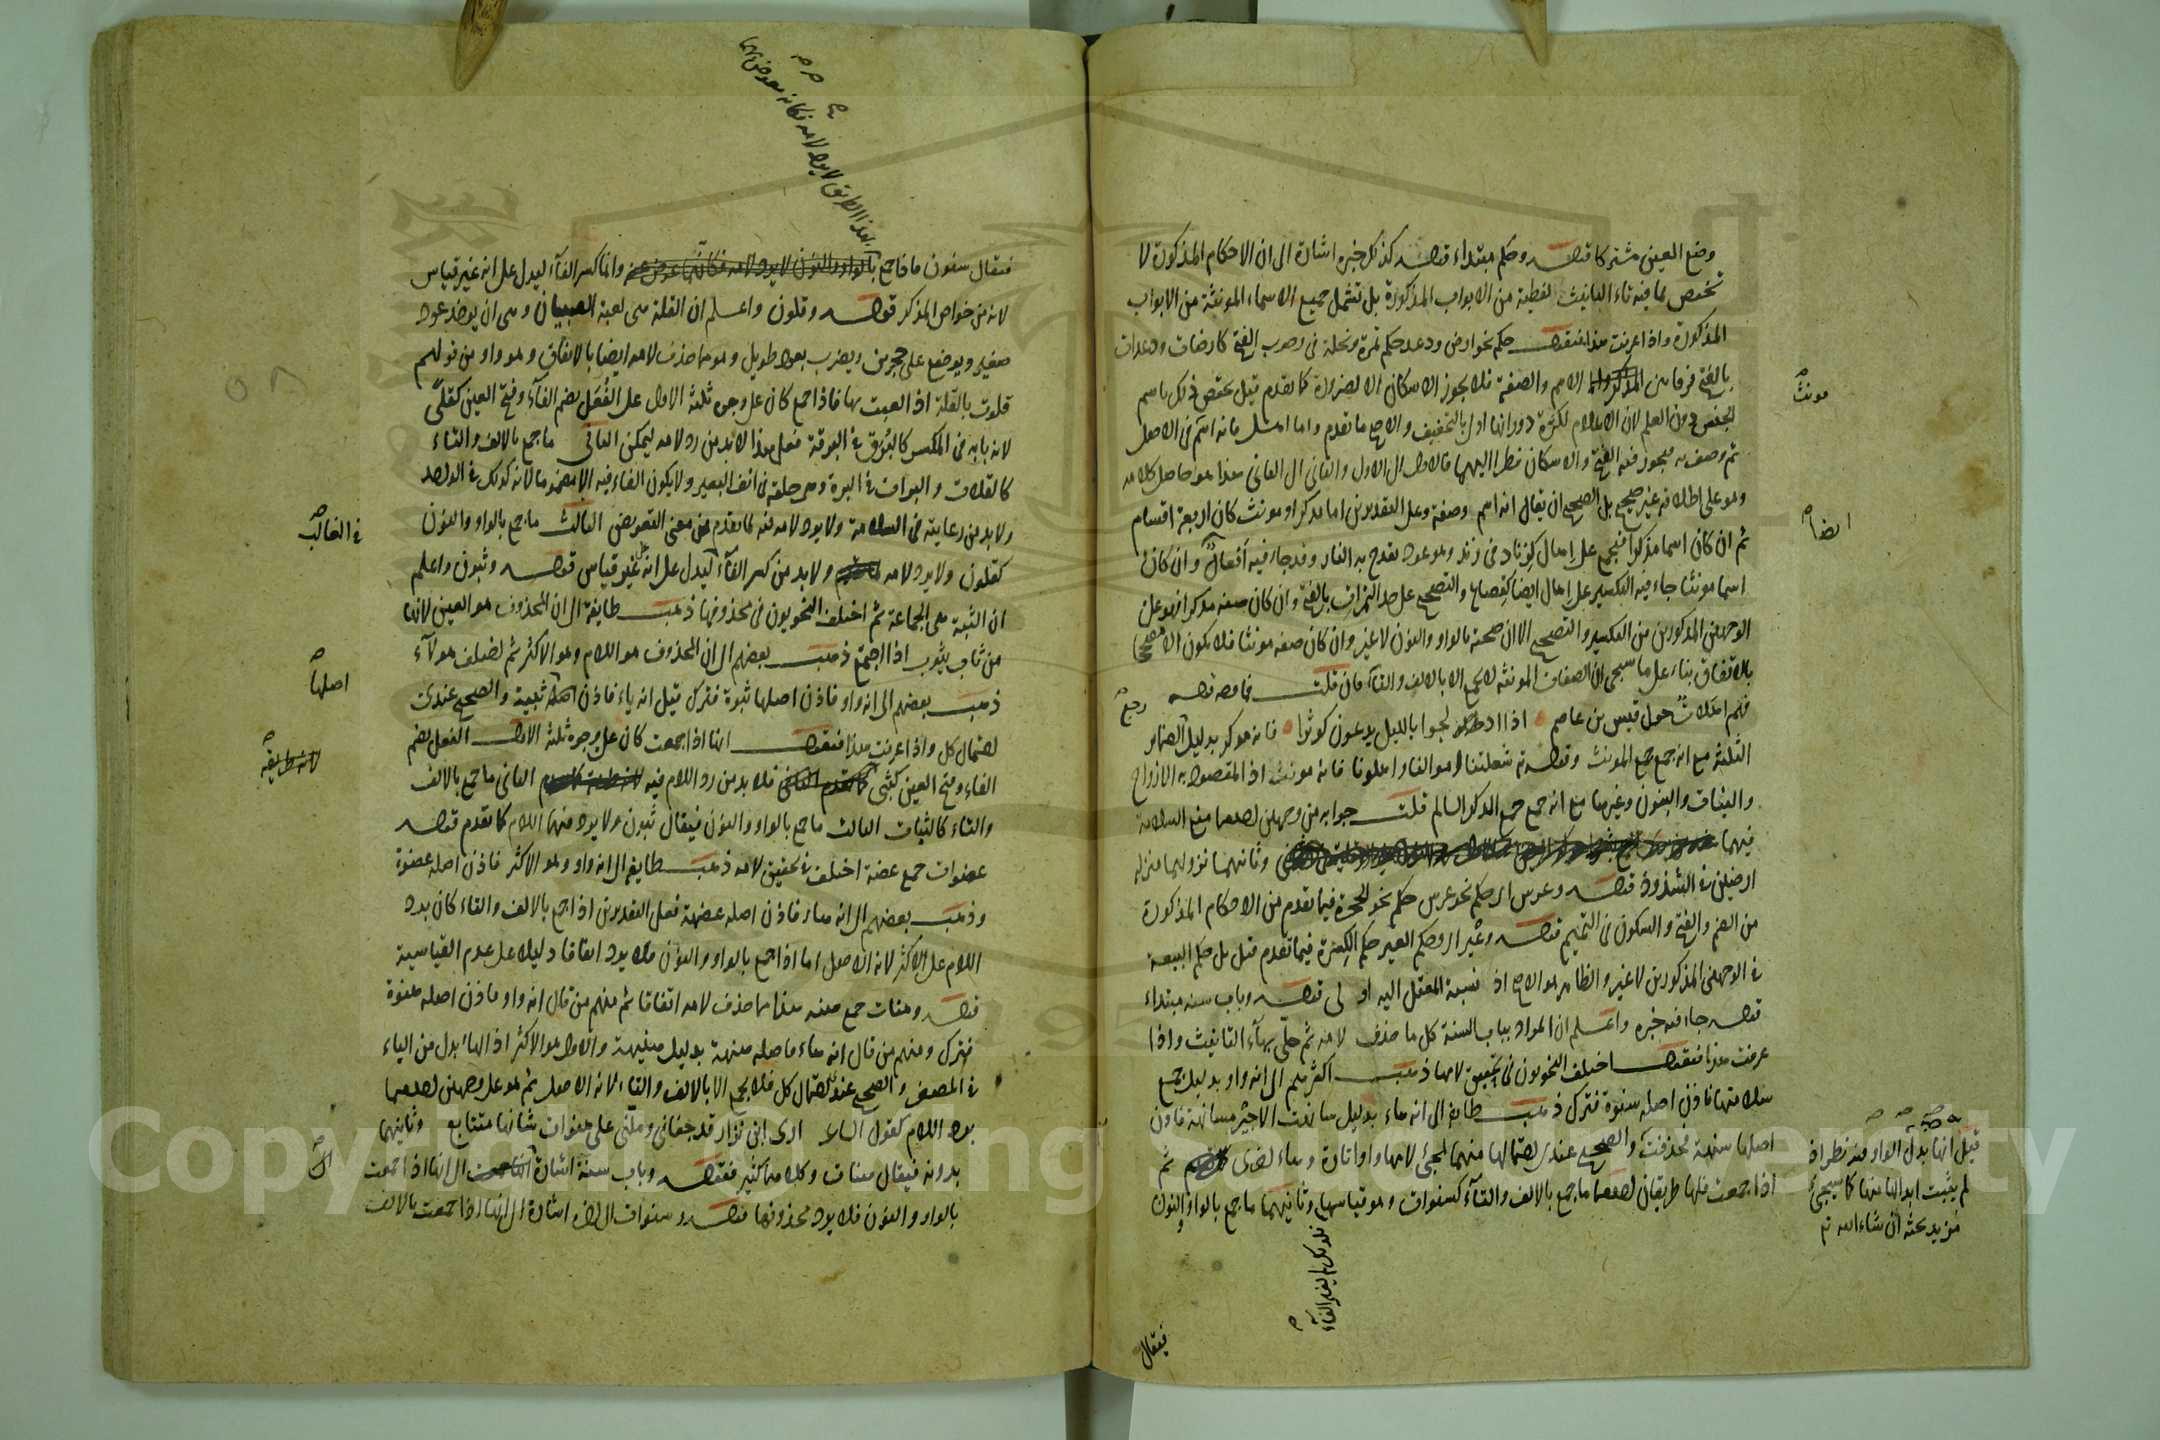 وضع العين مشتركا قوله وحكم مبتداء قوله كذلك خبره اشارة الى ان الاحكام المذكورة لا
تختص بما فيه تاء التانيث لفظية من الابواب المذكورة بل تشمل جميع الاسماء المونثة من الابواب
المذكورة واذا عرفت هذا فنقول حكم نحو ارض ودعد حكم تمرة ونخلة في وجوب الفتح كارضات ودعدات
بالفتح فرقا بين الاسم والصفة فلا يجوز الاسكان الا لضرورة كما تقدم قيل يختص ذلك باسم
مونث
الجنس دون العلم لان الاعلام لكثرة دورانها اولى بالتخفيف والاصح ما تقدم واما اهل فانه اسم في الاصل
ثم وصف به فيجوز فيه الفتح والاسكان نظرا اليهما فالاول الى الاول والثاني الى الثاني هذا هو حاصل كلامه
وهو على اطلاقه غير صحيح بل الصحيح ان يقال انه اسم وصفة وعلى التقديرين اما مذكر او مونث كان اربعة اقسام
ايضا
ثم ان كان اسما مذكرا فيجمع على افعال كزناد في زند وهو عود يقدح به النار وقد جاء فيه افعال وان كان
اسما مونثا جاء فيه التكسير على فعال ايضا كقصاع والتصحيح على حد التمرات بالفتح وان كان صفة مذكر فهو على
الوجهين المذكورين من التكسير والتصحيح الا ان صحته بالواو والنون لا غير وان كان صفة مونثا فلا يكون الا مصححا
بالاتفاق بناء على ما سيجئ ان الصفات المونثة لا تجمع الا بالالف والتاء فان قلت فما وجه قوله
فهم اهلات حول قيس بن عاصم اذا ادلجوا بالليل يدعون كوثرا فانه مذكر بدليل الضمائر
الثلثة مع انه جمع جمع المونث وقوله شغلتنا اموالنا واهلونا فانه مونث اذ المقصود به الازواج
والبنات والبنون وغيرها مع انه جمع جمع المذكر السالم قلت جوابه من وجهين احدهما منع السلامة
فيهما وثانيهما نزولهما منزلة
ارضين في الشذوذ قوله وعرس اي حكم نحو عرس حكم نحو الحجرة فيما تقدم من الاحكام المذكورة
من الضم والفتح والسكون في التميم قوله وعير اي وحكم العير حكم الكسرة فيما تقدم قيل بل حكم البيعة
في الوجهين المذكورين لا غير والظاهر هو الاصح اذ نسبة المعتل اليه اولى قوله وباب سنه مبتداء
قوله جاء فيه خبره واعلم ان المراد بباب السنة كل ما حذف لامه ثم حلي بهاء التانيث واذا
عرفت هذا فنقول اختلف النحويون في تحقيق لامها ذهب اكثرهم الى انه واو بدليل جمع
سلامتها فاذن اصله سنوة فترك ذهب طايفة الى انه هاء بدليل سانهت الاجير مسانهة فاذن
اصلها سنهة فحذفت والصحيح عندي احتمالها منهما لمجئ لامها واوا تارة وهاء اخرى ثم
اذا جمعت فلها طريقان احدهما ما جمع بالالف والتاء كسنوات وهو قياسها وثانيهما ما جمع بالواو والنون
قيل انها بدل الواو وفيه نظر اذ
لم يثبت ابدالها منها كما سيجئ
مزيد بحثه ان شاء الله تع
فيقال
فيقال سنون وانما كسر الفاء ليدل على انه غير قياس
بهذا الطريق لا يرد لامه فكانه معوض بها
لانه من خواص المذكر قوله وقلون واعلم ان القلة هي لعبة الصبيان وهي ان يوخذ عود
صغير ويوضع على حجرين ويضرب بعود طويل وهو مما حذف لامه ايضا بالاتفاق وهو واو من قولهم
قلوت بالقلة اذا لعبت بها فاذا جمع كان على وجوه ثلثة الاول على الفعل بضم الفاء وفتح العين كقلى
لانه بابه في المكسر كالبرق في البرقة فعلى هذا لا بد من رد لامه ليمكن الثاني ما جمع بالالف والتاء
كالقلات والبرات في البرة وهي حلقة في انف البعير ولا يكون الفاء فيه الا مضموما لانه كذلك في الواحد
في الغالب
ولا بد من رعايته في السلامة ولا يرد لامه فيه لما تقدم من معنى التعويض الثالث ما جمع بالواو والنون
كقلون ولا يرد لامه ولا بد من كسر الفاء ليدل على انه على غير قياس قوله وثبون واعلم
ان الثبة هي الجماعة ثم اختلف النحويون في محذوفها ذهب طايفة الى ان المحذوف هو العين لانها
من ثاب يثوب اذا اجتمع ذهب بعضهم الى ان المحذوف هو اللام وهو الاكثر ثم اختلف هؤلاء
اصلها
ذهب بعضهم الى انه واو فاذن اصلها ثبوة فترك قيل انه ياء فاذن اصله ثبية والصحيح عندي
احتمال كل واذا عرفت هذا فنقول انها اذا جمعت كان على وجوه ثلثة الاول الفعل بضم
الفاء وفتح العين كثبى فلا بد من رد اللام فيه الثاني ما جمع بالالف
والتاء كالثبات الثالث ما جمع بالواو والنون فيقال ثبون ولا يرد فيهما اللام كما تقدم قوله
عضوات جمع عضة اختلف في تحقيق لامه ذهب طايفة الى انه واو وهو الاكثر فاذن اصله عضوة
وذهب بعضهم الى انه هاء فاذن اصله عضهة فعلى التقديرين اذا جمع بالالف والتاء كان برد
اللام على الاكثر لانه الاصل اما اذا جمع بالواو والنون فلا يرد اتفاقا دليلا على عدم القياسية
قوله وهنات جمع هنه هذا مما حذف لامه اتفاقا ثم منهم من قال انه واو فاذن اصله هنوة
فترك ومنهم من قال انه هاء فاصله هنهة بدليل هنيهة والاول هو الاكثر اذ الهاء بدل من الياء
في المصغر والصحيح عندي احتمال كل فلا يجمع الا بالالف والتاء لانه الاصل ثم هو على وجهين احدهما
برد اللام كقول الشاعر ارى ابن نزار قد جفاني وملني على هنوات شانها متتابع وثانيهما
بدونه فيقال هنات وكلاهما كثير فقوله وباب سنة اشارة الى انها اذا جمعت
بالواو والنون فلا يرد محذوفها قوله وسنوات الى اخره اشارة الى انها اذا جمعت بالالف